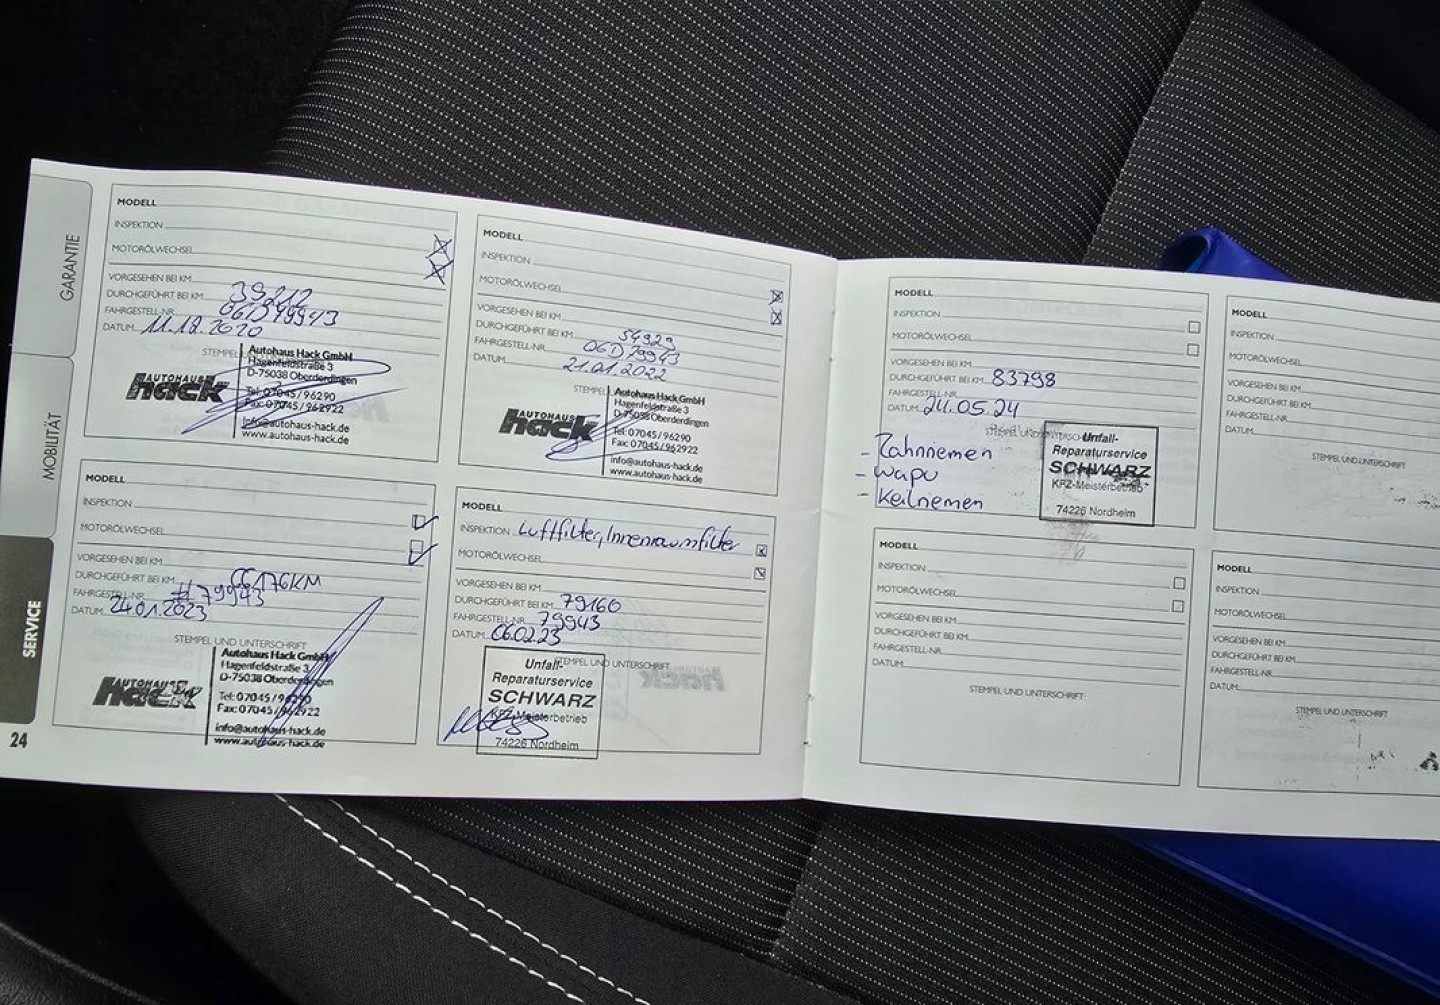 GARANTIE
MOBILITÄT
SERVICE
24
MODELL
INSPEKTION
MOTORÖLWECHSEL
VORGESEHEN BEI KM
DURCHGEFÜHRT BEI KM 39212
FAHRGESTELL-NR. 06D79943
DATUM 11.12.2020
STEMPEL
AUTOHAUS
hack
Autohaus Hack GmbH
Hagenfeldstraße 3
D-75038 Oberderdingen
Tel: 07045/96290
Fax: 07045/962922
info@autohaus-hack.de
www.autohaus-hack.de
MODELL
INSPEKTION
MOTORÖLWECHSEL
VORGESEHEN BEI KM
DURCHGEFÜHRT BEI KM 54929
FAHRGESTELL-NR. 06D79943
DATUM 21.01.2022
STEMPEL
AUTOHAUS
hack
Autohaus Hack GmbH
Hagenfeldstraße 3
D-75038 Oberderdingen
Tel: 07045/96290
Fax: 07045/962922
info@autohaus-hack.de
www.autohaus-hack.de
MODELL
INSPEKTION
MOTORÖLWECHSEL
VORGESEHEN BEI KM
DURCHGEFÜHRT BEI KM 66176KM
FAHRGESTELL-NR. #79943
DATUM 24.01.2023
STEMPEL UND UNTERSCHRIFT
AUTOHAUS
hack
Autohaus Hack GmbH
Hagenfeldstraße 3
D-75038 Oberderdingen
Tel: 07045/96290
Fax: 07045/962922
info@autohaus-hack.de
www.autohaus-hack.de
MODELL
INSPEKTION Luftfilter, Innenraumfilter
MOTORÖLWECHSEL
VORGESEHEN BEI KM
DURCHGEFÜHRT BEI KM 79160
FAHRGESTELL-NR. 79943
DATUM 06.02.23
STEMPEL UND UNTERSCHRIFT
Unfall-
Reparaturservice
SCHWARZ
KFZ-Meisterbetrieb
74226 Nordheim
MODELL
INSPEKTION
MOTORÖLWECHSEL
VORGESEHEN BEI KM
DURCHGEFÜHRT BEI KM 83798
FAHRGESTELL-NR.
DATUM 24.05.24
STEMPEL UND UNTERSCHRIFT
- Zahnriemen
- Wapu
- Keilriemen
Unfall-
Reparaturservice
SCHWARZ
KFZ-Meisterbetrieb
74226 Nordheim
MODELL
INSPEKTION
MOTORÖLWECHSEL
VORGESEHEN BEI KM
DURCHGEFÜHRT BEI KM
FAHRGESTELL-NR.
DATUM
STEMPEL UND UNTERSCHRIFT
MODELL
INSPEKTION
MOTORÖLWECHSEL
VORGESEHEN BEI KM
DURCHGEFÜHRT BEI KM
FAHRGESTELL-NR.
DATUM
STEMPEL UND UNTERSCHRIFT
MODELL
INSPEKTION
MOTORÖLWECHSEL
VORGESEHEN BEI KM
DURCHGEFÜHRT BEI KM
FAHRGESTELL-NR.
DATUM
STEMPEL UND UNTERSCHRIFT